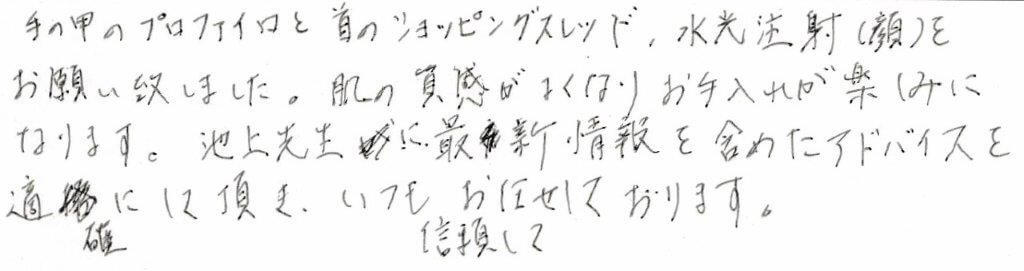 手の甲のプロファイロと首のショッピングスレッド、水光注射(顔)を
お願い致しました。肌の質感がよくなりお手入れが楽しみに
なります。池上先生に最新情報を含めたアドバイスを
適確にして頂き、いつも信頼してお任せしております。